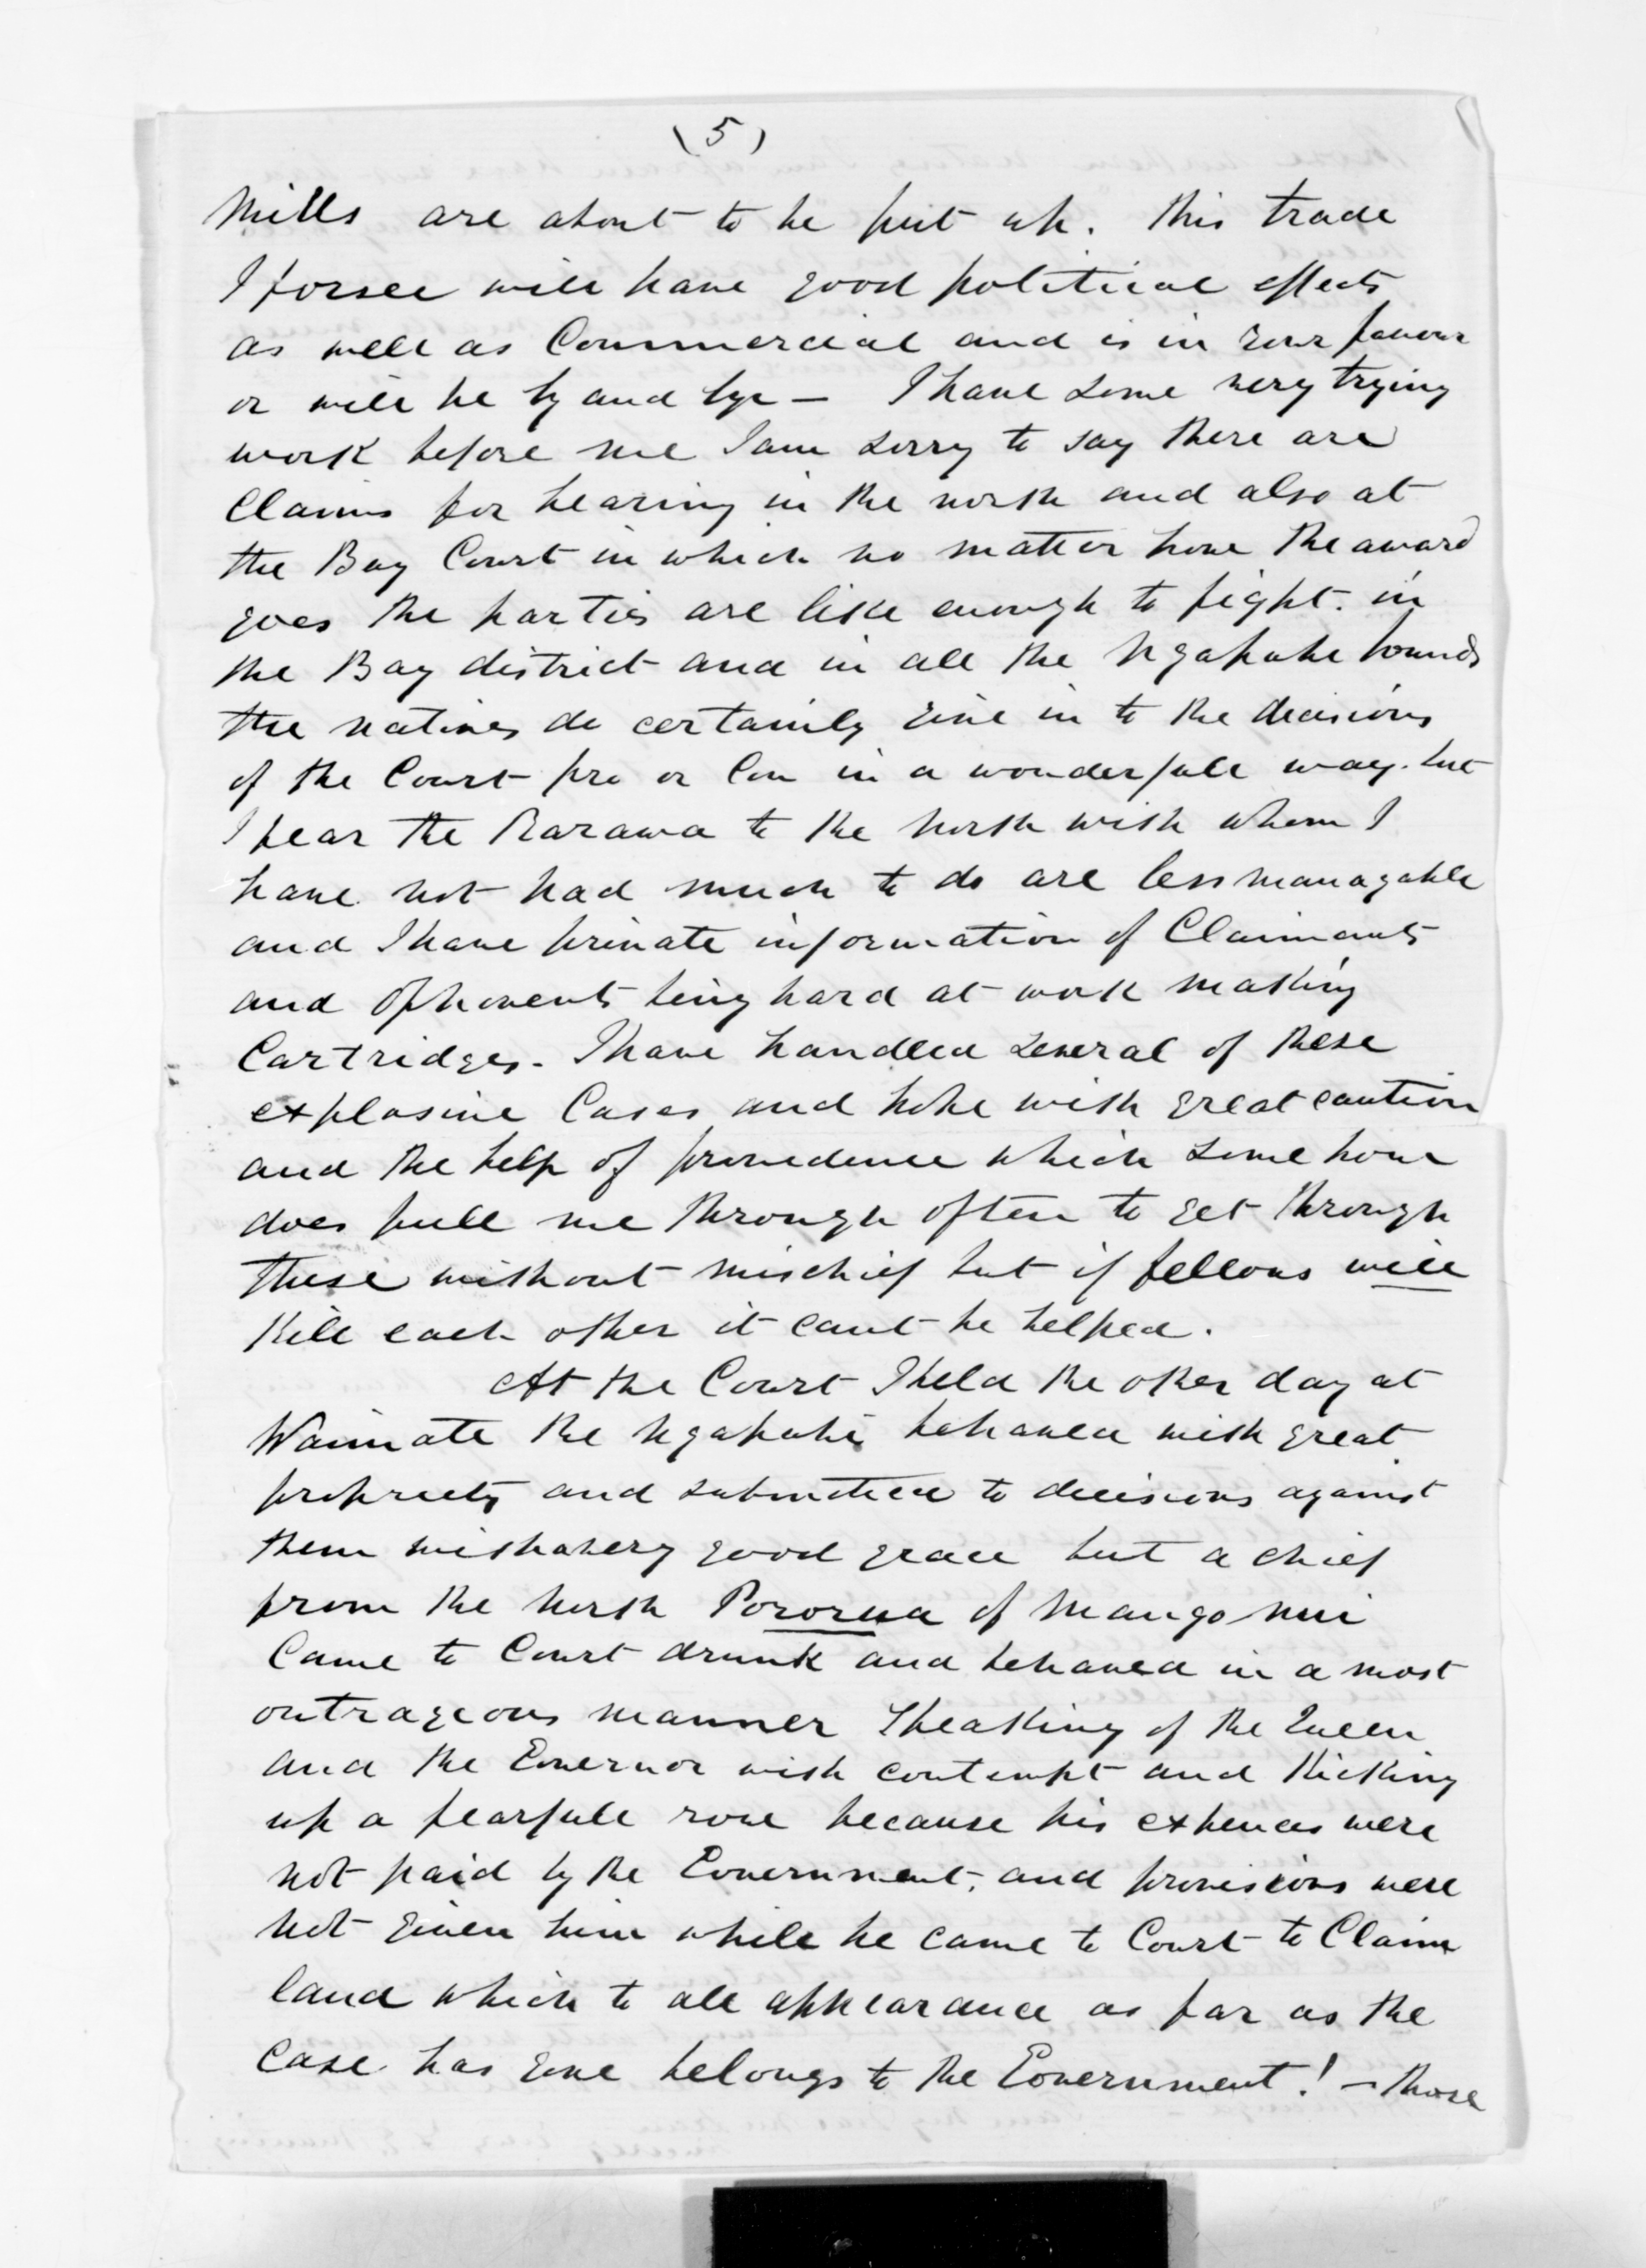 (5)
Mills are about to be put up. This trade
I forsee will have good political effects
as well as Commercial and is in your favour
or will be by and bye — I have some very trying
work before me I am sorry to say there are
Claims for hearing in the north and also at
the Bay Court in which no matter how the award
goes the parties are like enough to fight. in
the Bay district and in all the Ngapuhi bounds
the natives do certainly give in to the decisions
of the Court pro or Con in a wonderfull way. but
I fear the Rarawa to the North with whom I
have not had much to do are less managable
and I have private information of Claimants
and Opponents being hard at work making
Cartridges. I have handled several of these
explosive Cases and hope with great caution
and the help of providence which some how
does pull me through often to get through
these without mischief but if fellows will
Kill each other it cant be helped.
At the Court I held the other day at
Waimate the Ngapuhi behaved with great
propriety and submitted to decisions against
them with a very good grace but a chief
from the North Pororua of Mangonui
Came to Court drunk and behaved in a most
outrageous manner Speaking of the Queen
and the Governor with contempt and Kicking
up a fearfull row because his expences were
not paid by the Government, and provisions were
not given him while he came to Court to Claim
land which to all appearance as far as the
case has gone belongs to the Government! — those